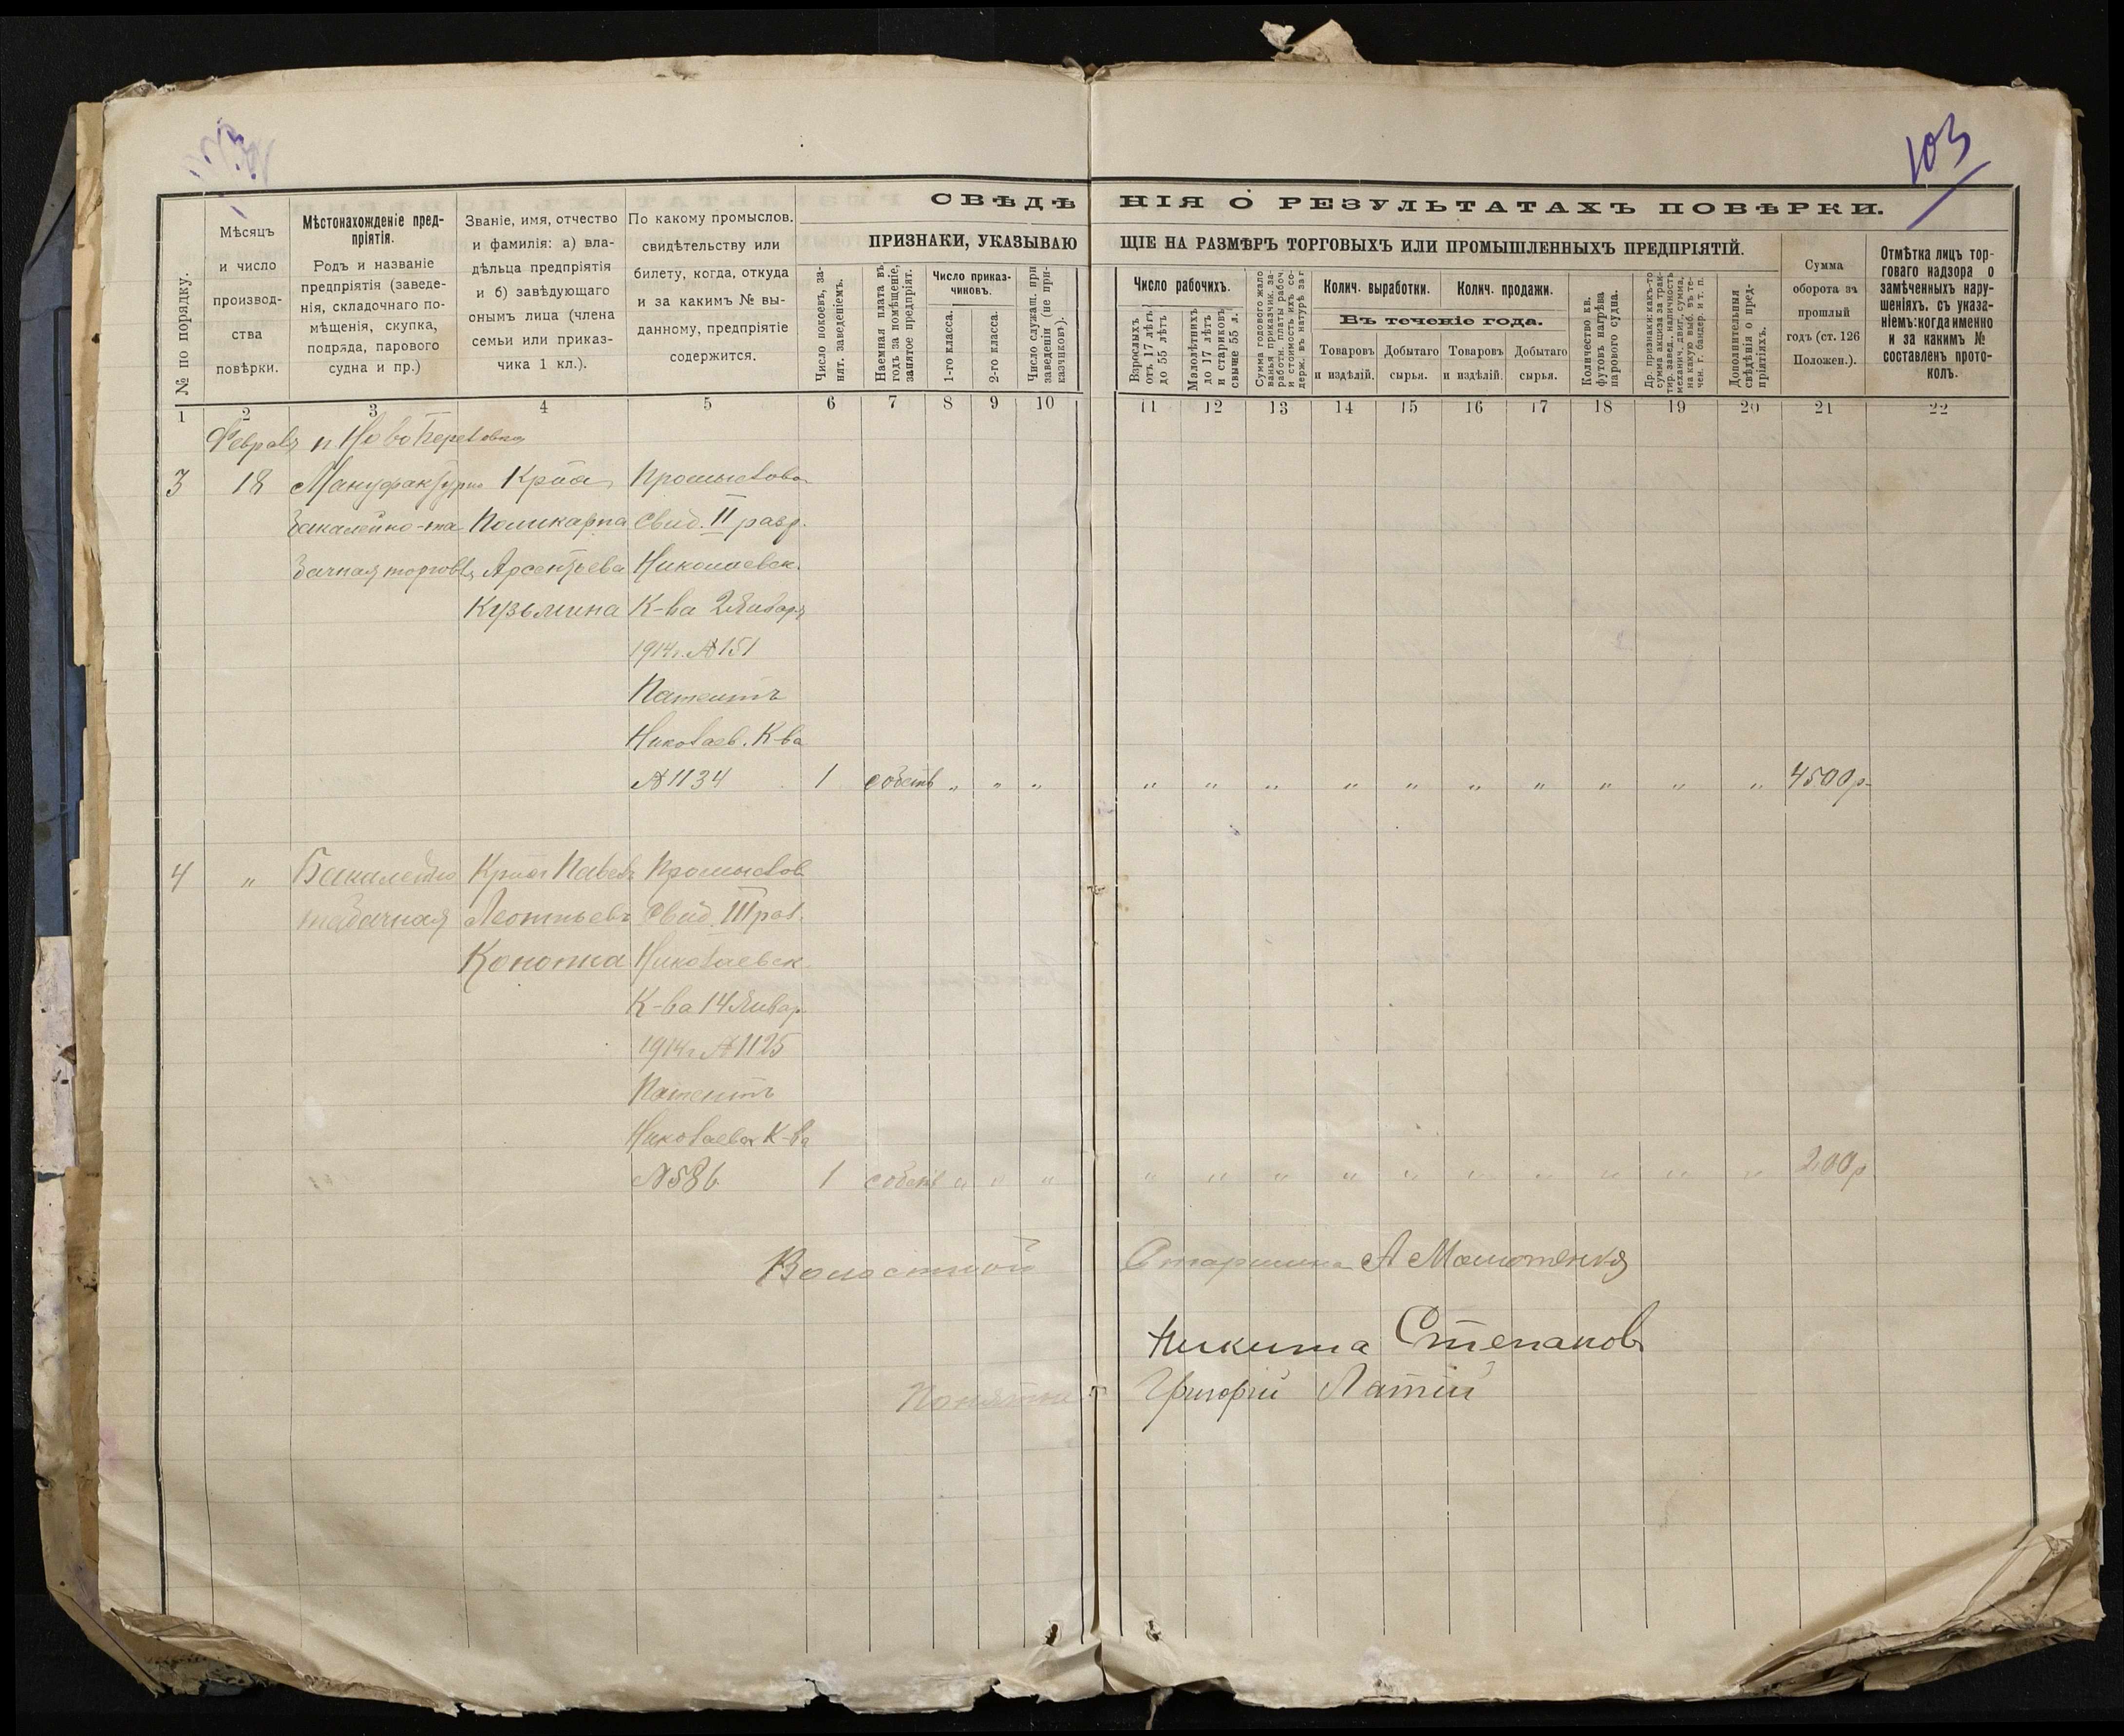 103
СВѢДѢНІЯ О РЕЗУЛЬТАТАХЪ ПОВѢРКИ.
№ по порядку.
Мѣсяцъ
и число
производ-
ства
повѣрки.
Мѣстонахожденіе пред-
пріятія.
Родъ и названіе
предпріятія (заведе-
нія, складочнаго по-
мѣщенія, скупка,
подряда, парового
судна и пр.)
Званіе, имя, отчество
и фамилія: а) вла-
дѣльца предпріятія
и б) завѣдующаго
онымъ лица (члена
семьи или приказ-
чика 1 кл.).
По какому промыслов.
свидѣтельству или
билету, когда, откуда
и за какимъ № вы-
данному, предпріятіе
содержится.
ПРИЗНАКИ, УКАЗЫВАЮЩІЕ НА РАЗМѢРЪ ТОРГОВЫХЪ ИЛИ ПРОМЫШЛЕННЫХЪ ПРЕДПРІЯТІЙ.
Число покоевъ, за-
нят. заведеніемъ.
Наемная плата въ
годъ за помѣщеніе,
занятое предпріят.
Число приказ-
чиковъ.
1-го класса.
2-го класса.
Число служащ. при
заведеніи (не при-
казчиковъ).
Число рабочихъ.
Взрослыхъ
отъ 17 лѣтъ
до 55 лѣтъ
Малолѣтнихъ
до 17 лѣтъ
и стариковъ
свыше 55 л.
Сумма годового жало
ванья приказчик. за-
работн. платы рабоч.
и стоимость ихъ со-
держ. въ натурѣ за г
Колич. выработки.
Колич. продажи.
Въ теченіе года.
Товаровъ
и издѣлій.
Добытаго
сырья.
Товаровъ
и издѣлій.
Добытаго
сырья.
Количество кв.
футовъ нагрѣва
парового судна.
Др. признаки: какъ-то
сумма акциза за трак-
тир. завед. наличность
механич. двиг., сумма,
на какую выб. въ те-
чен. г. бандер. и т. п.
Дополнительныя
свѣдѣнія о пред-
пріятіяхъ.
Сумма
оборота за
прошлый
годъ (ст. 126
Положен.).
Отмѣтка лицъ тор-
говаго надзора о
замѣченныхъ нару-
шеніяхъ, съ указа-
ніемъ: когда именно
и за какимъ №
составленъ прото-
колъ.
1 2 3 4 5 6 7 8 9 10 11 12 13 14 15 16 17 18 19 20 21 22
Февраля
3 18 Мануфактурно Кр-на Промыслово
бакалейно-та Поликарпа Свид. II разр.
бачная торговля Арсентьева Николаевск.
Кузьмина К-ва 2 Января
1914 г. № 151
Патентъ
Николаев. К-ва
№ 1134 1 собств " " " " " " " " " " " " " 4500 р.
4 " Бакалейно Кр-нъ Павелъ Промыслов.
табачная Леонтьевъ Свид. III раз.
Кононка Николаевск.
К-ва 14 Январ.
1914 г. № 1125
Патентъ
Николаевск К-ва
№ 586 1 собств " " " " " " " " " " " " " 200 р
Волостной Старшина А
Никита Степанов
Понятые Григорій Латій